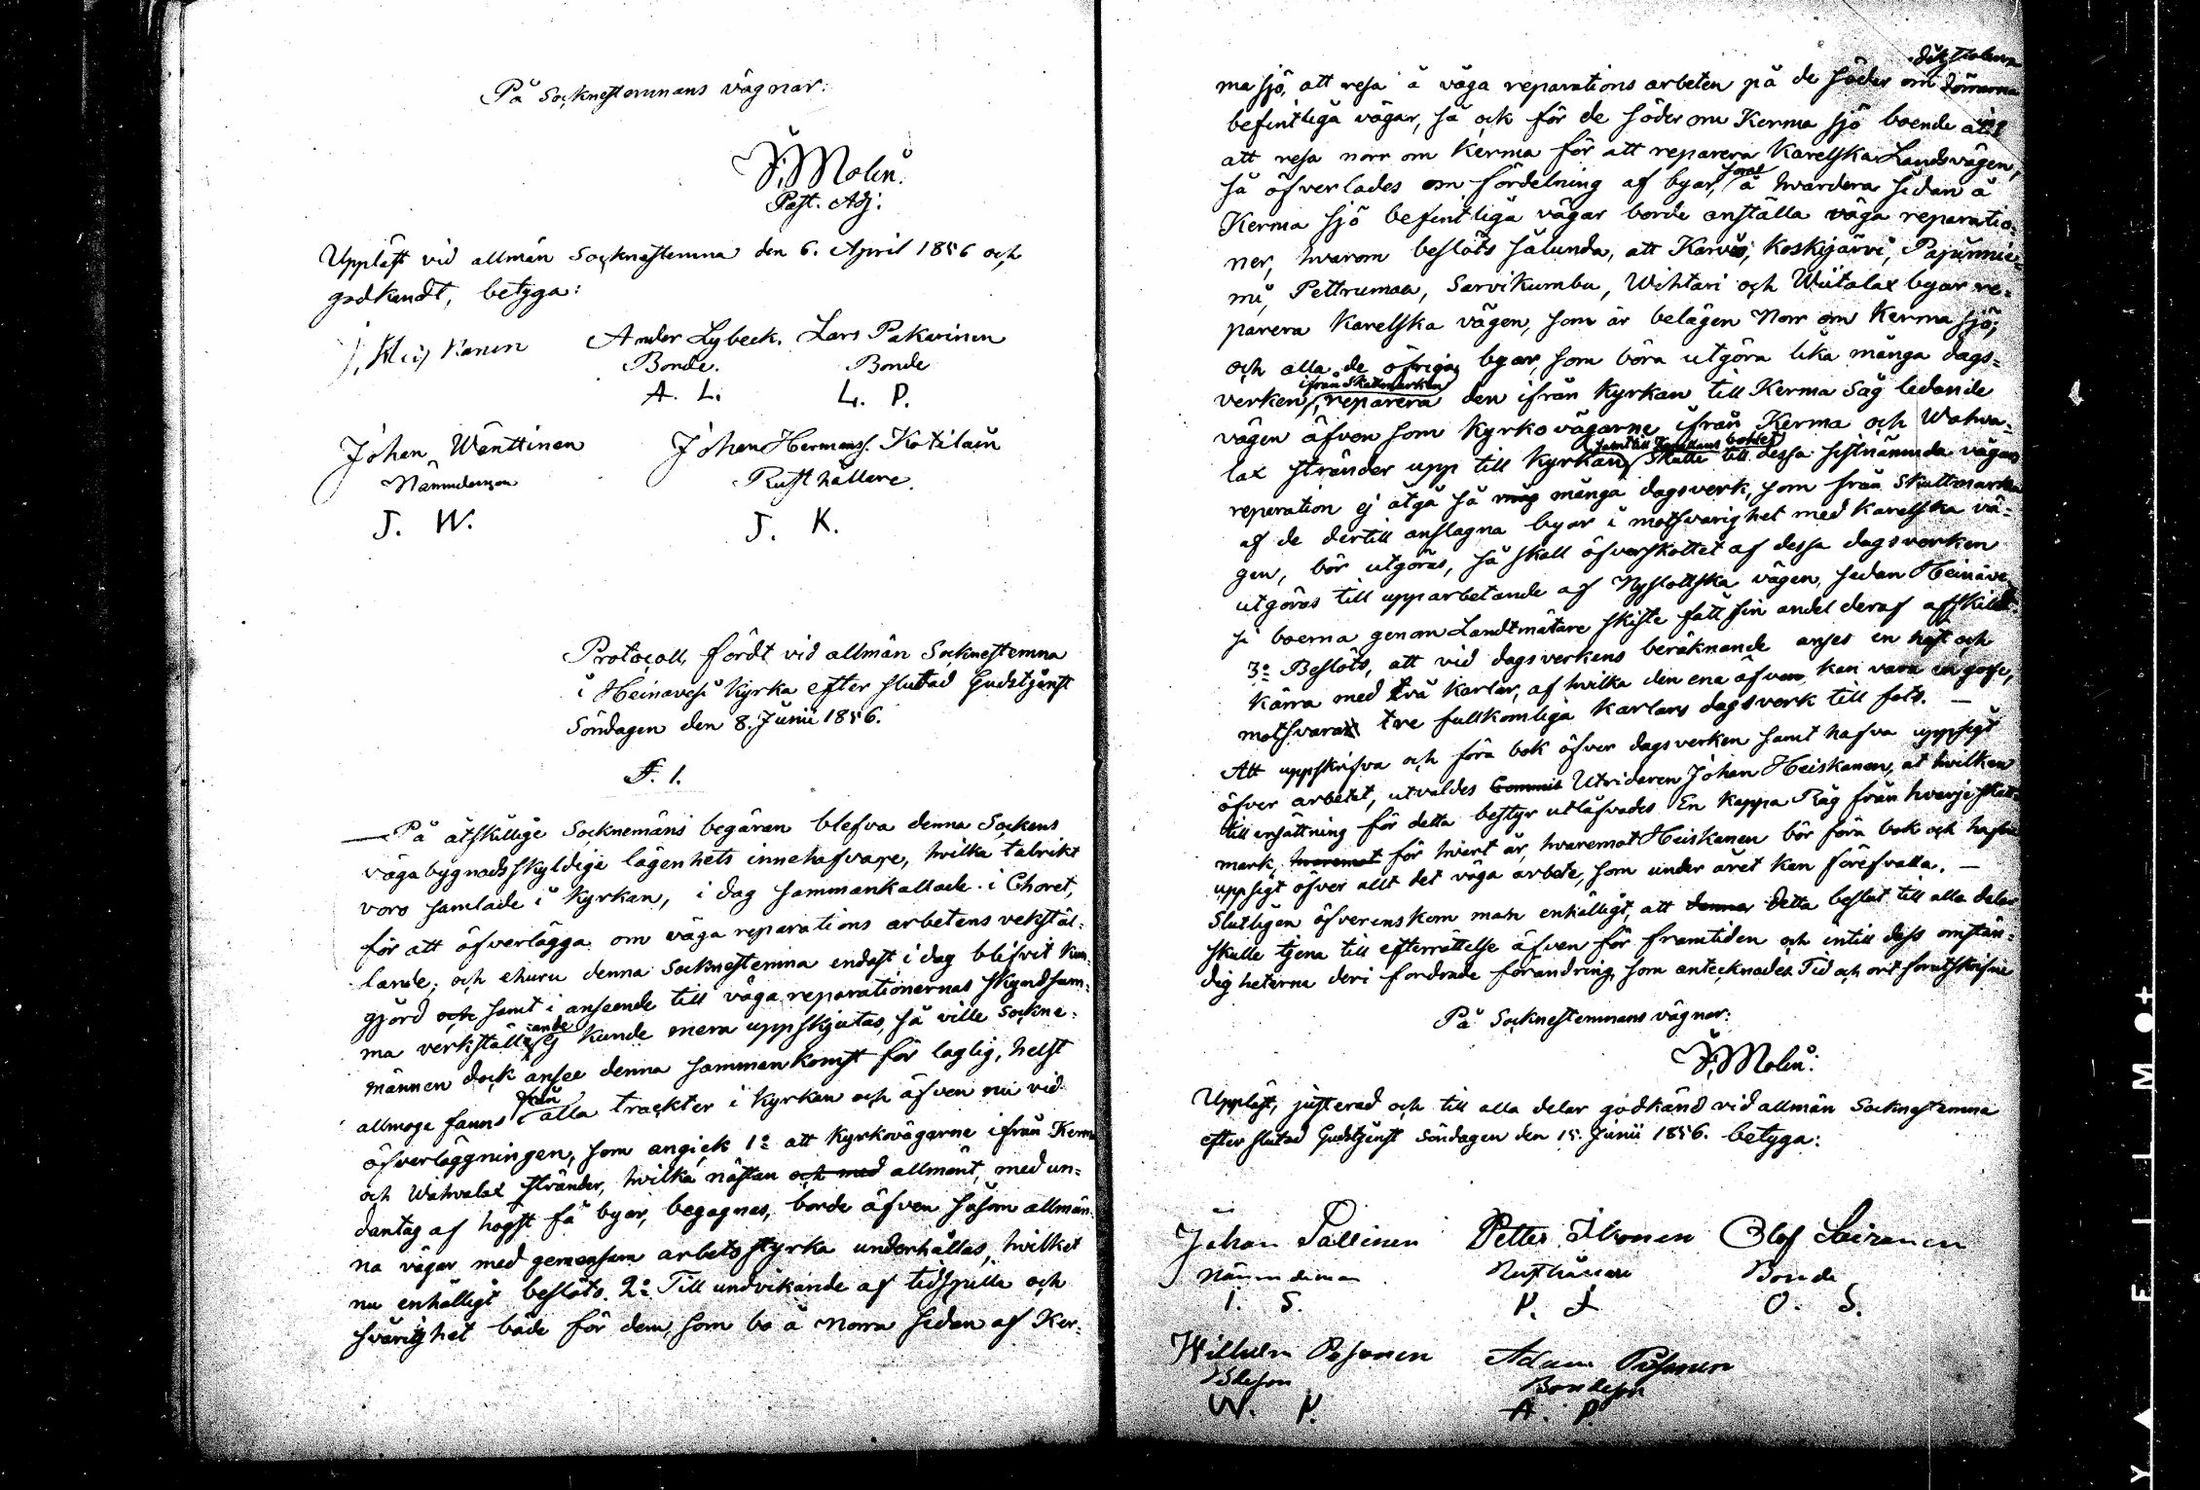 På Socknestemmans vägnar:
F. Molin.
Past. Adj:
Uppläst vid allmän Socknestemna den 6. April 1856 och
godkändt, betyga:
Anders Lybeck. Lars Pakarinen
Bonde. Bonde
A. L. L. P.
Johan Wänttinen Johan Hermanss. Kotilain
Nämndeman Rusthållare.
J. W. J. K.
Protocoll, fördt vid allmän Socknestemna
i Heinävesi Kyrka efter slutad Gudstjenst
Söndagen den 8. Junii 1856.
§. 1.
På åtskillige Socknemäns begäran blefvo denna Sockens
vägabygnadsskyldige lägenhets innehafvare, hvilka talrikt
voro samlade i Kyrkan, i dag sammankallade i Choret,
för att öfverlägga om väga reparations arbetens vekstäl-
lande; och ehuru denna Socknestemna endast i dag blifvit kun-
gjord och samt i anseende till väga reparationernas skyndsam-
ma verkställande ej kunde mera uppskjutas, så ville Sockne-
männen dock ansee denna sammankomst för laglig, helst
allmoge fanns från alla trackter i Kyrkan och äfven nu vid
öfverläggningen, som angick 1:o att Kyrkovägarne ifrån Kerma
och Wahvalax stränder, hvilka nästan och med allmänt, med un-
dantag af högst få byar, begagnas, borde äfven såsom allmän-
na vägar med gemensam arbetsstyrka underhållas, hvilket
nu enhälligt beslöts. 2:o Till undvikande af tidspillan och
svårighet både för dem, som bo å norra sidan af Ker-
ma sjö, att resa å väga reparations arbeten på de söder om
befintliga vägar, så ock för de söder om Kerma sjö boende
att resa norr om Kerma för att reparera Karelska Landsvägen,
så öfverlades om fördelning af byar, som å hvardera sidan å
Kerma sjö befintliga vägar borde anställa väga reparatio-
ner, hvarom beslöts sålunda, att Karvio, Koskijärvi, Papinnie-
mi, Pettrumaa, Sarvikumbu, Wihtari och Wiitalax byar re-
parera Karelska vägen, som är belägen Norr om Kerma sjö;
och alla de öfriga byar, som böra utgöra lika många dags-
verken ifrån Skattmarken, reparera den ifrån Kyrkan till Kerma Såg ledande
vägen äfven som Kyrkovägarne ifrån Kerma och Wahva-
lax stränder upp till Kyrkan samt till Capellans bohlet Skulle till dessa sistnämnda vägars
reparation ej åtgå så många dagsverk, som från Skattmarken
af de dertill anslagna byar i motsvarighet med Karelska vä-
gen, bör utgöras, så skall öfverskottet af dessa dagsverken
utgöras till upparbetande af Nyslottska vägen, sedan Heinäve-
si boerna genom Landtmätare skifte fått sin andel deraf afskildt.
3:o Beslöts, att vid dagsverkens beräknande anses en häst och
kärra med två karlar, af hvilka den ena äfven kan vara en gosse,
motsvara tre fullkomliga karlars dagsverk till fots. —
Att uppskrifva och föra bok öfver dagsverken samt hafva uppsigt
öfver arbetet, utvaldes Commis Utridaren Johan Heiskanen, åt hvilken
till ersättning för detta bestyr utlåfvades En Kappa Råg från hvarje skatt-
mark, hvaremot för hvart år, hvaremot Heiskanen bör föra bok och hafva
uppsigt öfver allt det väga arbete, som under året kan förefalla. —
Slutligen öfverenskom man enhälligt, att denna detta beslut till alla delar
skulle tjena till efterrättelse äfven för framtiden och intill dess omstän-
digheterna deri fordrade förändring, som antecknades. Tid och ort förutskrifne
På Socknestemmans vägnar:
F. Molin:
Uppläst, justerad och till alla delar godkänd vid allmän Socknestemna
efter slutad Gudstjenst Söndagen den 15. Junii 1856. betyga:
Johan Petter Ikonen Olof
Nämndeman Rusthållare Bonde
I. S. P. I O. S.
Wilhelm Pesonen Adam Pesonen
Bondeson
W. P. A. P.